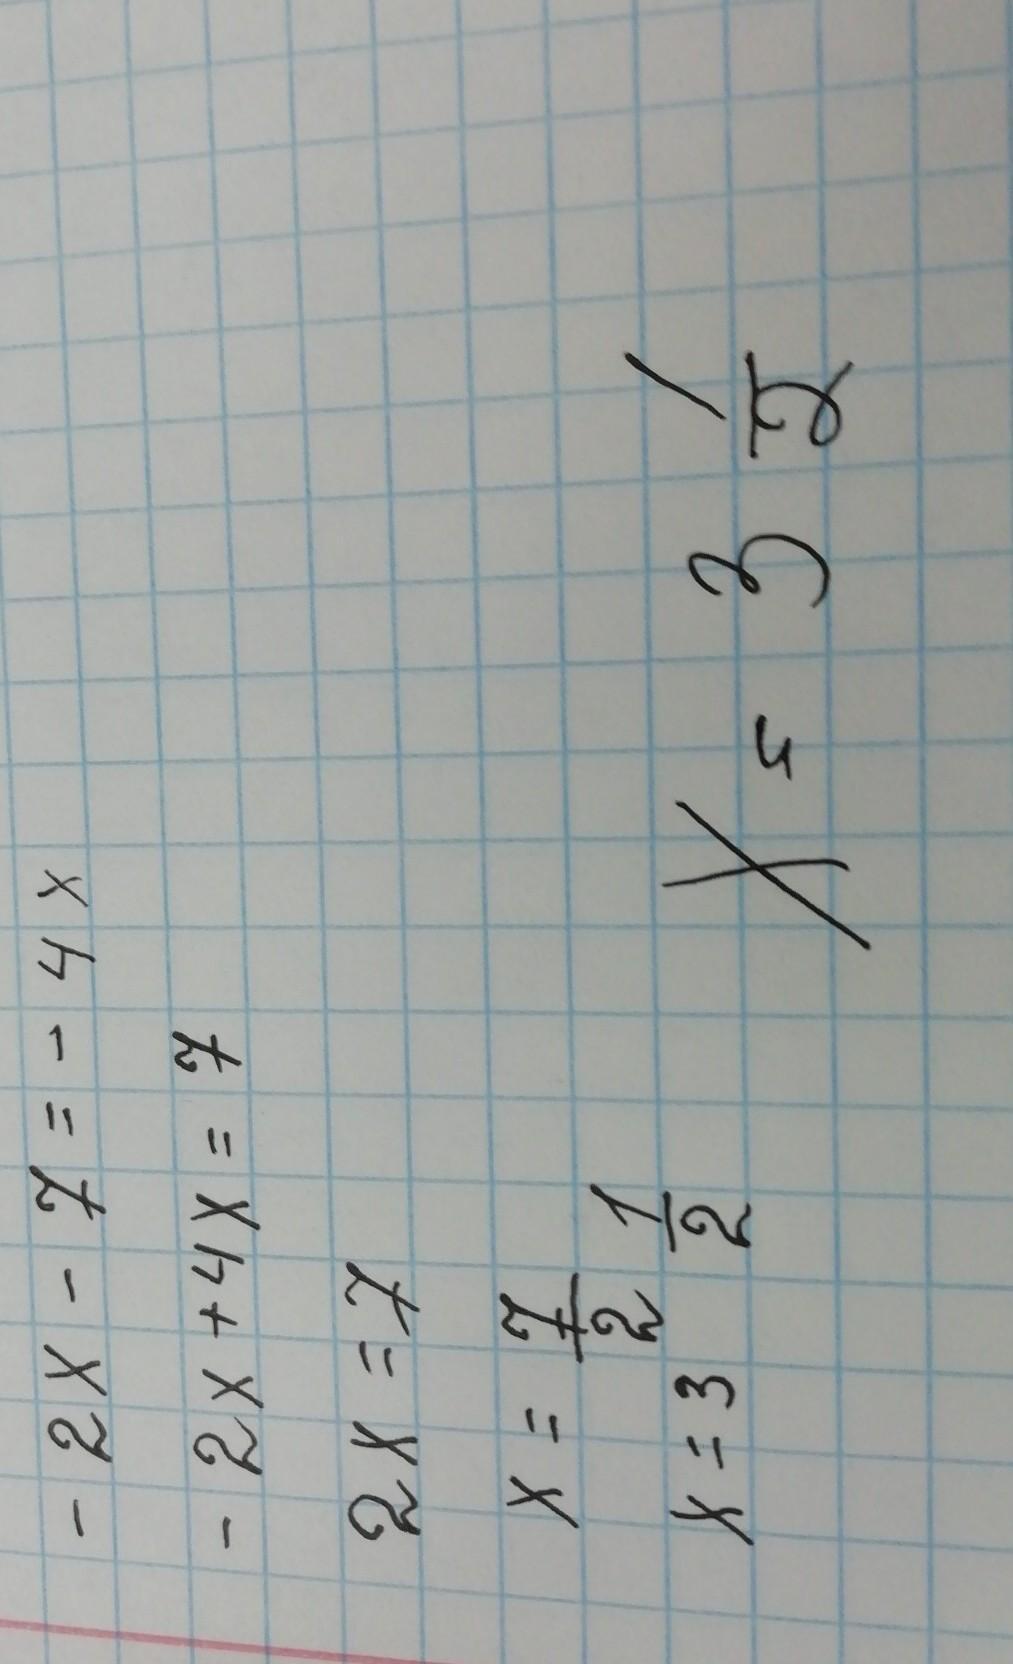 - 2x - 7 = - 4x
- 2x + 4x = 7
2x = 7
x = 7/2
x = 3 1/2
x = 3 1/2